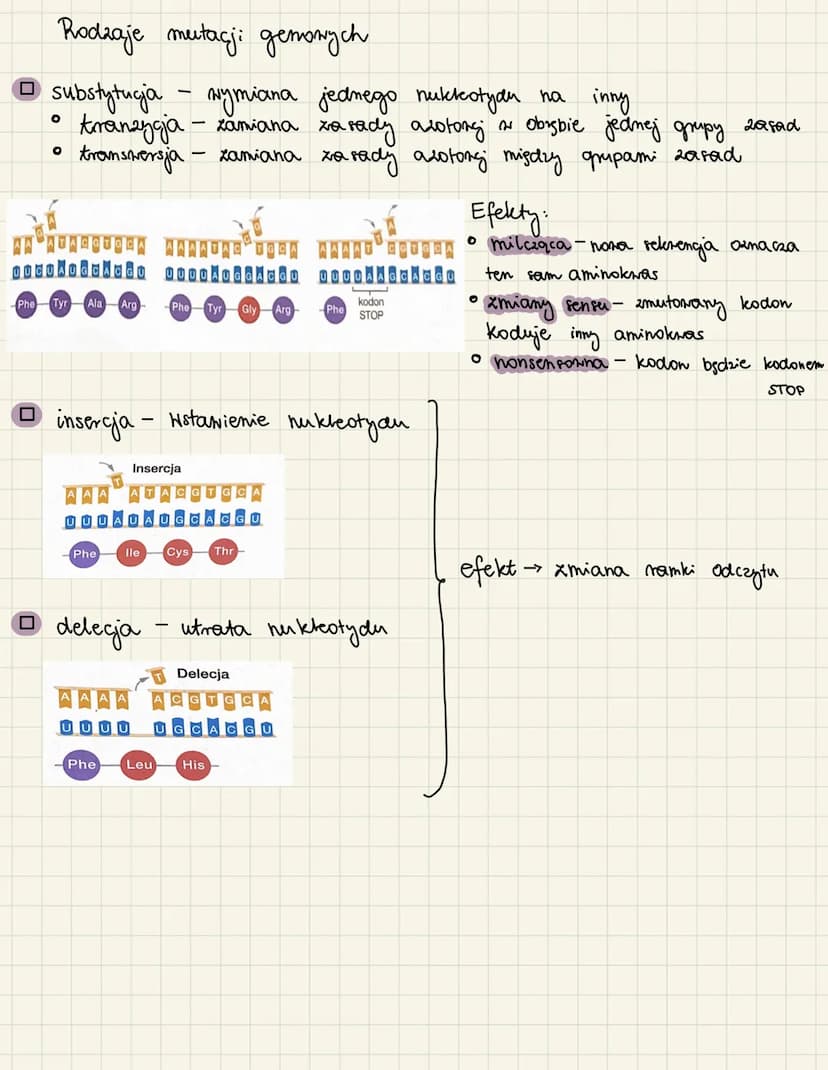 Rodzaje mutacji genowych
substytucja – wymiana jednego nukleotydu na inny
tranzycja – zamiana zasady azotowej w obrębie jednej grupy zasad
transwersja – zamiana zasady azotowej między grupami zasad
Efekty:
milcząca – nowa sekwencja oznacza
ten sam aminokwas
zmiany sensu – zmutowany kodon
koduje inny aminokwas
nonsensowna – kodon będzie kodonem
STOP
Phe Tyr Ala Arg
Phe Tyr Gly Arg
Phe kodon
STOP
insercja – wstawienie nukleotydu
Insercja
T
A A A A T A C G T G C A
U U U A U A U G C A C G U
Phe Ile Cys Thr
efekt → zmiana ramki odczytu
delecja – utrata nukleotydu
T Delecja
A A A A A C G T G C A
U U U U U G C A C G U
Phe Leu His